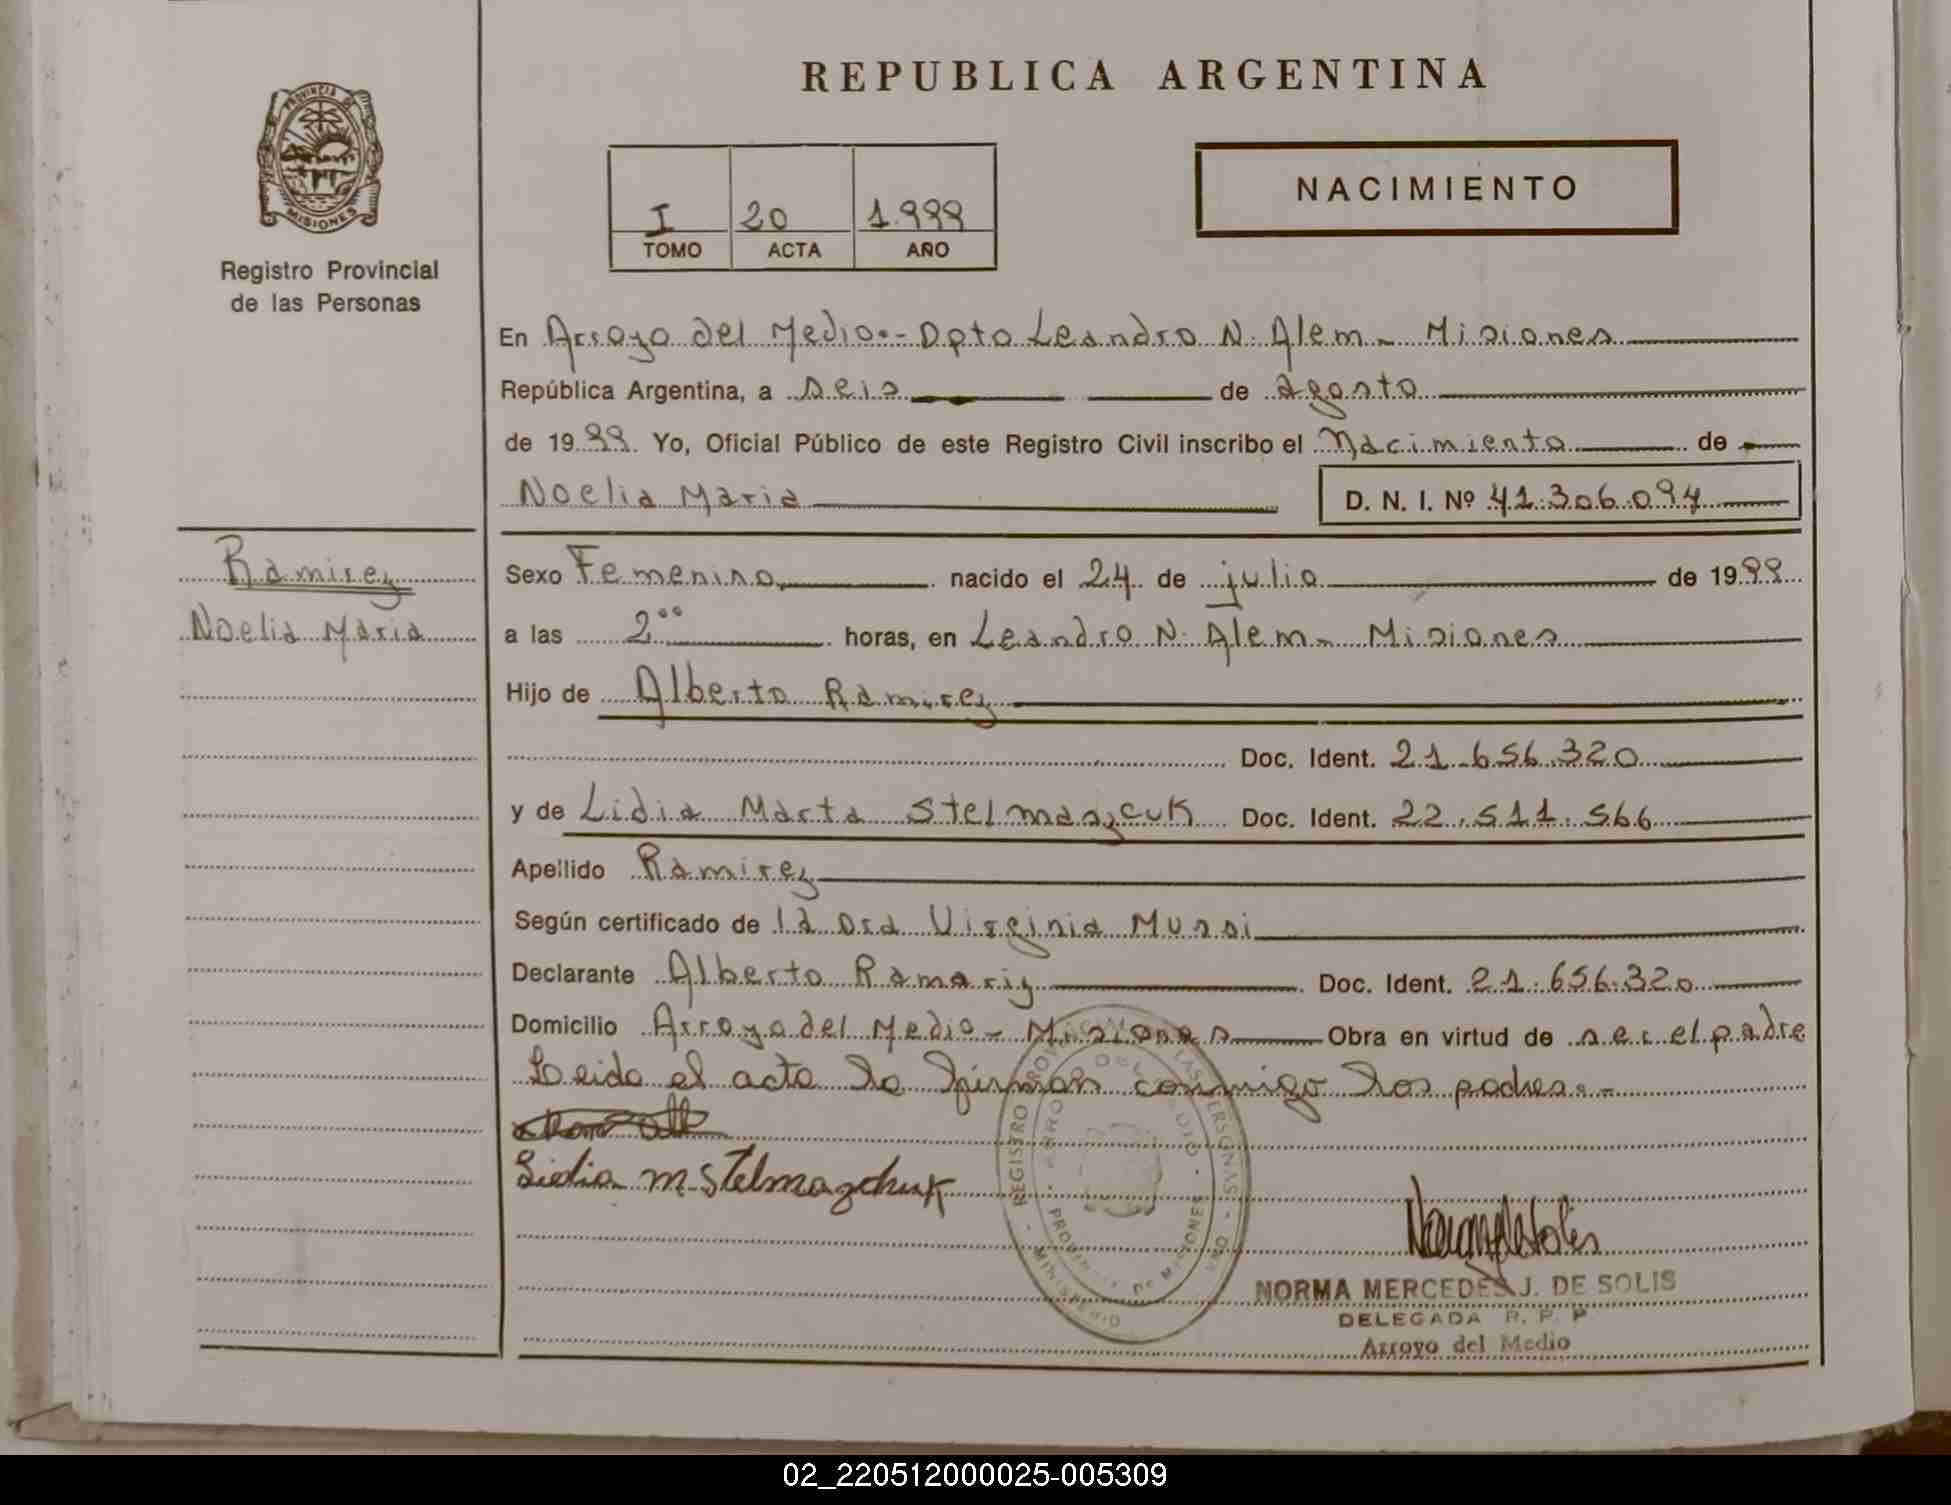 REPUBLICA ARGENTINA
PROVINCIA DE
MISIONES
Registro Provincial
de las Personas
I 20 1.999
TOMO ACTA AÑO
NACIMIENTO
En Arroyo del Medio.- Dpto Leandro N. Alem - Misiones
República Argentina, a seis de agosto
de 1999. Yo, Oficial Público de este Registro Civil inscribo el Nacimiento de
Noelia Maria D. N. I. Nº 41.306.094
Ramirez
Noelia Maria
Sexo Femenino nacido el 24 de julio de 1999
a las 2°° horas, en Leandro N. Alem - Misiones
Hijo de Alberto Ramirez
Doc. Ident. 21.656.320
y de Lidia Marta Stelmaszcuk Doc. Ident. 22.511.566
Apellido Ramirez
Según certificado de la Dra Virginia Mussi
Declarante Alberto Ramariz Doc. Ident. 21.656.320
Domicilio Arroyo del Medio - Misiones Obra en virtud de ser el padre
Leida el acta la firman conmigo los padres.-
Lidia M Stelmazchuk
REGISTRO PROVINCIAL DE LAS PERSONAS
PROVINCIA DE MISIONES
MINISTERIO
NORMA MERCEDES J. DE SOLIS
DELEGADA R. P. P
Arroyo del Medio
02_220512000025-005309